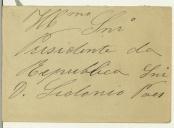 Illmo Snr
Presidente da
Republica Snr
D. Sidonio Paes